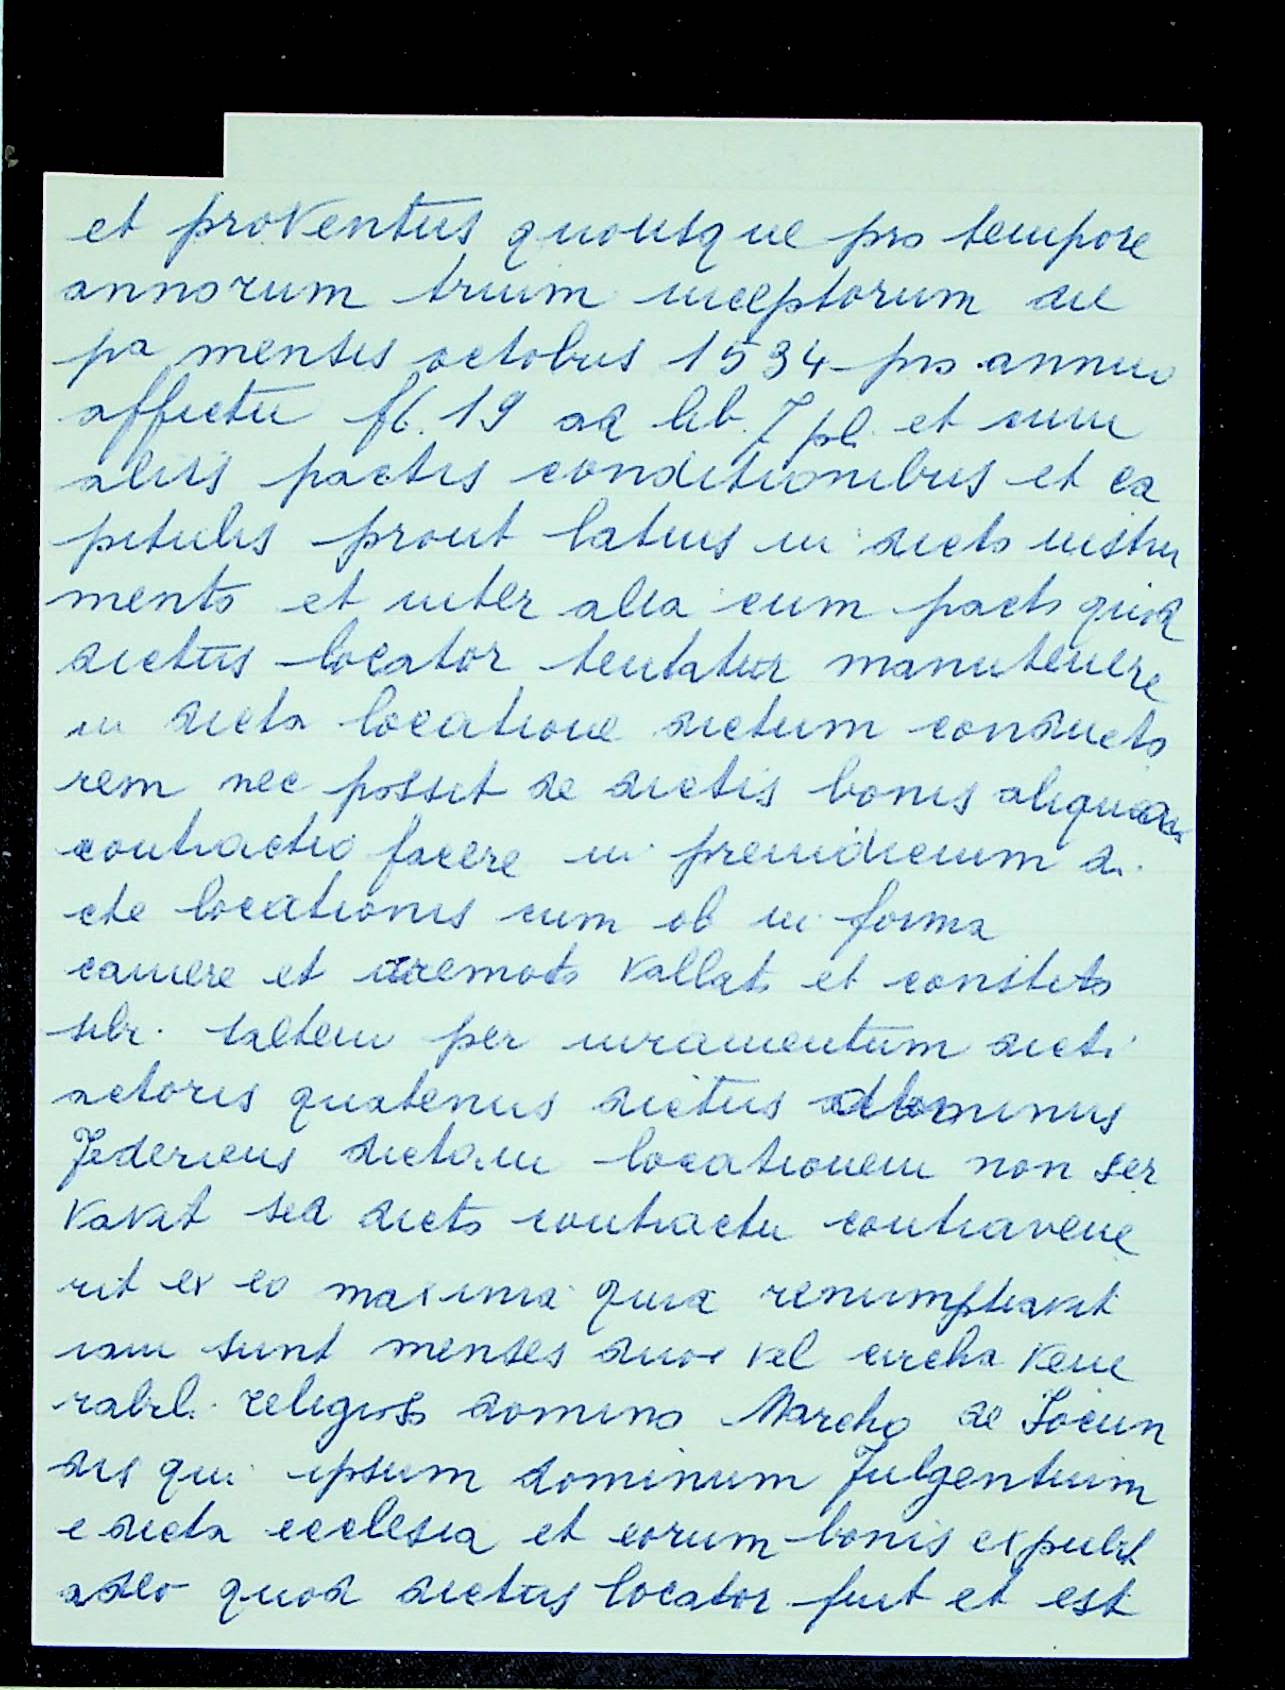 et proventus quousque pro tempore
annorum trium inceptorum die
pa mensis octobris 1534 pro annuo
affictu fl. 19 ad lib. 7 pl. et cum
aliis pactis conditionibus et ca
pitulis prout latius in dicto instru
mento et inter alia cum pacto quod
dictus locator teneatur manutenere
in dicta locatione dictum conducto
rem nec possit de dictis bonis aliquem
contractio facere in preiudicium di
cte locationis cum ob in forma
camere et iuremoto vallat. et constito
sibi saltem per iuramentum dicti
actoris quatenus dictus dominus
Federicus dictam locationem non ser
vavit sed dicto contractu contravene
rit ex eo maxima quia renumptiavit
iam sunt menses duos vel circha vene
rabil. religioso domino Marcho de Iocun
dis qui ipsum dominum Fulgentium
e dicta ecclesia et eorum bonis expulit
adeo quod dictus locator fuit et est